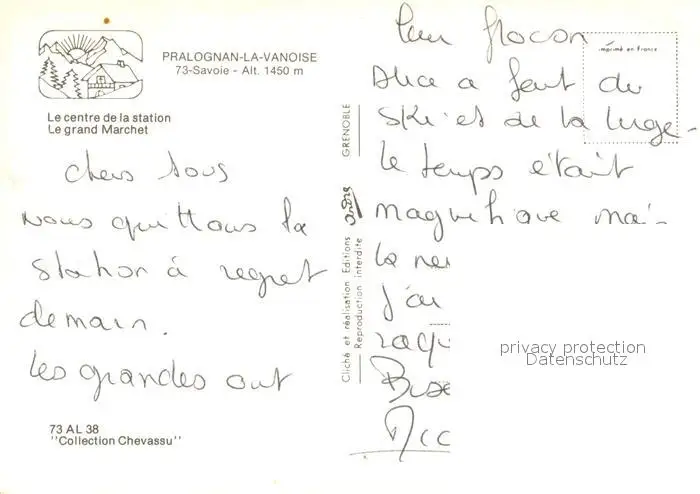 PRALOGNAN-LA-VANOISE
73-Savoie - Alt. 1450 m
Le centre de la station
Le grand Marchet
chers tous
nous quittons la
station à regret
demain.
les grandes ont
73 AL 38
"Collection Chevassu"
GRENOBLE
Cliché et réalisation Editions André
Reproduction interdite
leur flocon
Alice a fait du
ski et de la luge
le temps était
magnifique mai
la nei
j'ai
raqu
Bise
imprimé en france
privacy protection
Datenschutz